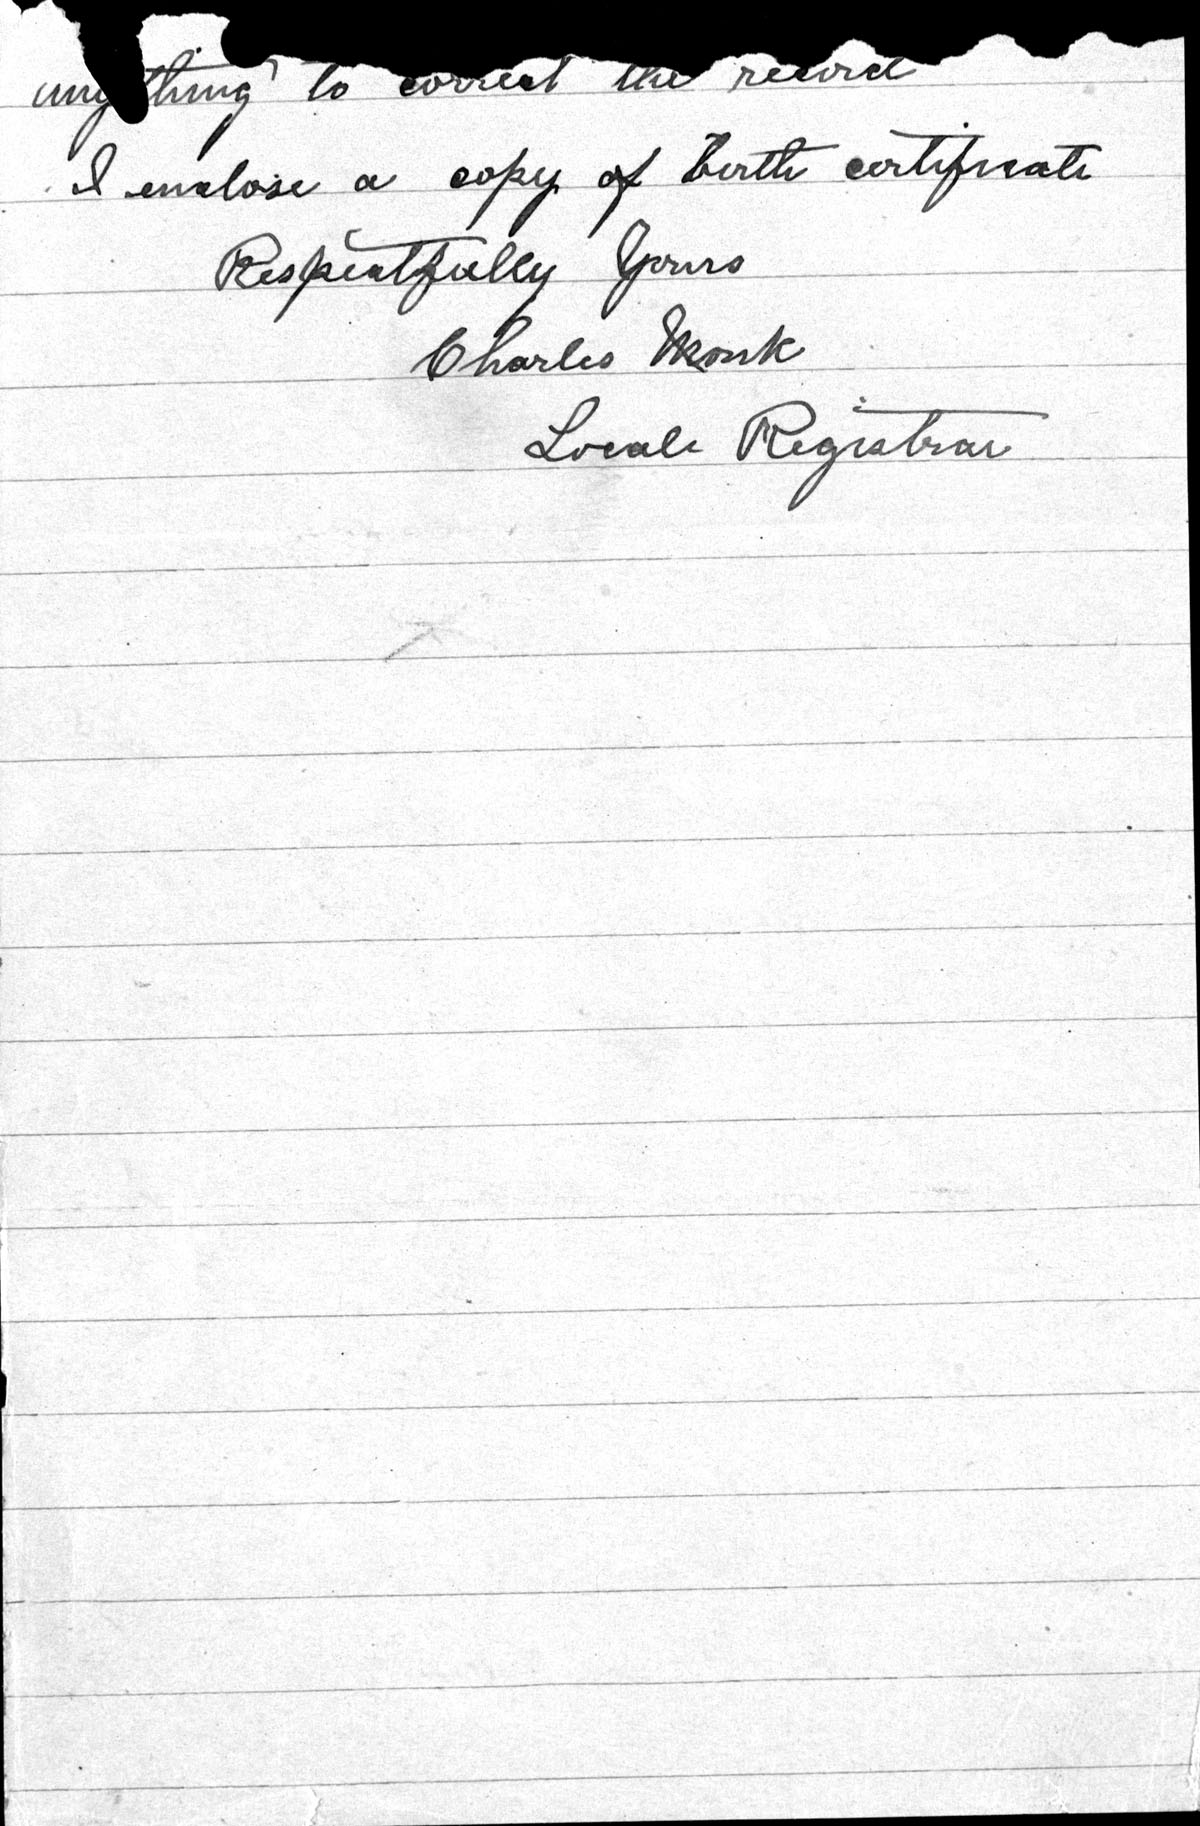 anything to correct the record
I enclose a copy of birth certificate
Respectfully Yours
Charles Monk
Local Registrar